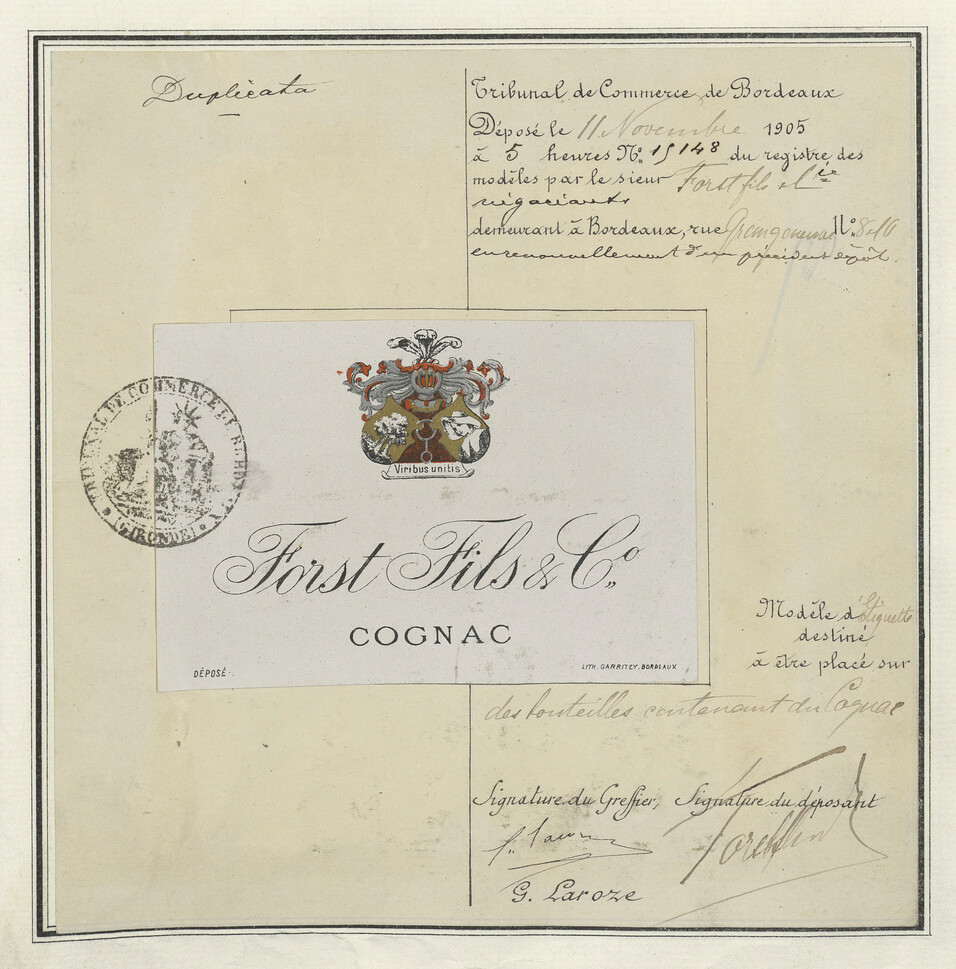 Duplicata
Tribunal de Commerce de Bordeaux
Déposé le 11 Novembre 1905
à 5 heures No. 15148 du registre des
modèles par le sieur Forst fils et Cie
négociants
demeurant à Bordeaux, rue No. 8
en renouvellement d'un précédent dépôt.
TRIBUNAL DE COMMERCE DE
(GIRONDE)
Viribus unitis
Forst Fils & Co.
COGNAC
DÉPOSÉ.
LITH. GARRITEY. BORDEAUX
Modèle d'Etiquette
destiné
à être placé sur
des bouteilles contenant du Cognac
Signature du Greffier, Signature du déposant
G. Laroze